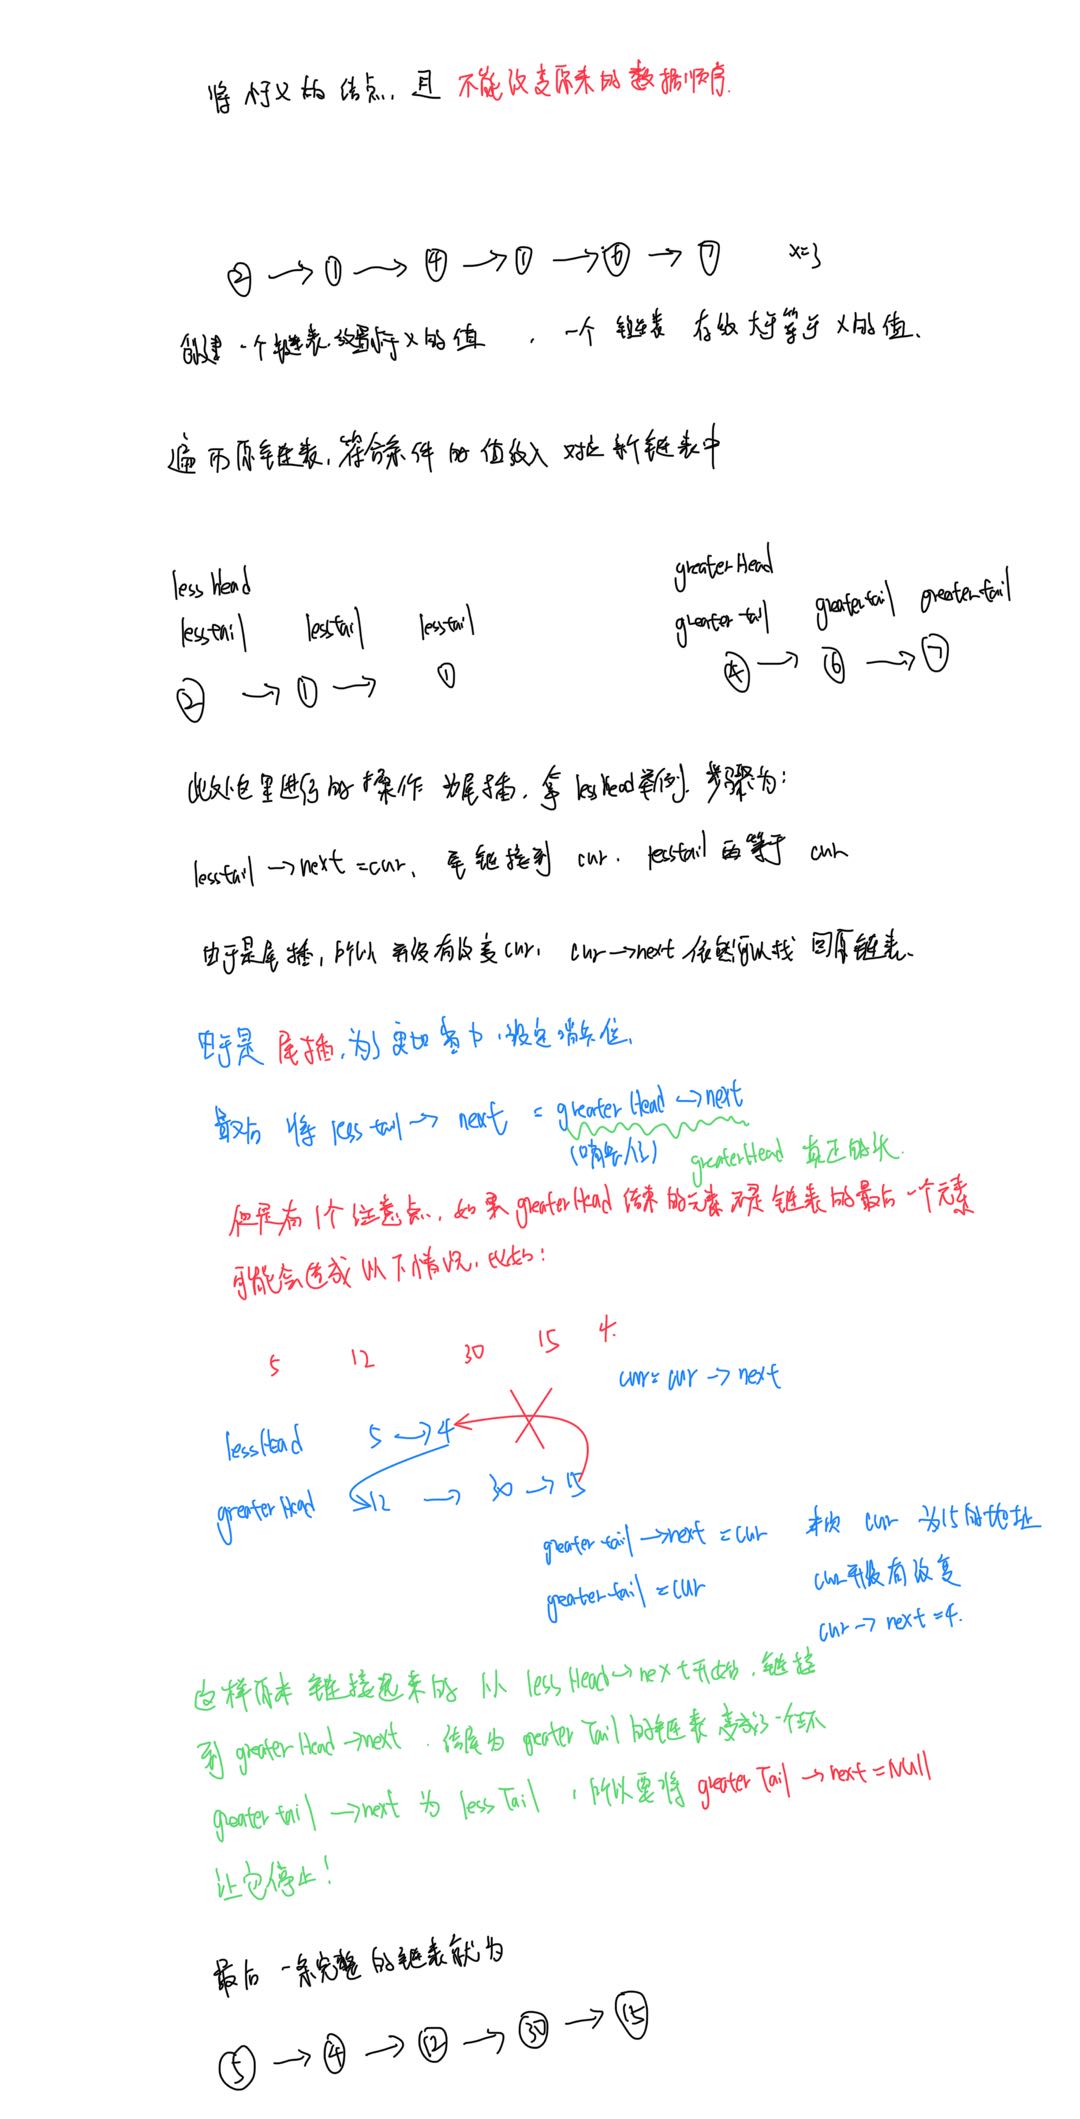 将小于X的结点，且 不能改变原来的数据顺序.
② → ① → ④ → ① → ⑥ → ⑦ x=3
创建一个链表放置小于X的值 ，一个 链表 存放大于等于X的值、
遍历原链表，符合条件的值放入 对应新链表中
less Head
greaterHead
lesstail lesstail lesstail
greatertail greatertail greatertail
② → ① → ①
④ → ⑥ → ⑦
此处这里进行的操作 为尾插，拿lessHead举例，步骤为：
lesstail→next=cur， 链接到 cur． lesstail 等于 cur
由于是尾插，所以 并没有改变cur， cur→next依然可以找回原链表、
由于是 尾插，为了更加 ，设定哨兵位、
最后 将 less tail→ next = greaterHead→next
(哨兵位) greaterHead 真正的头.
但是有1个注意点，如果greaterHead 结束的元素不是链表的最后一个元素
可能会造成以下情况，比如：
5 12 30 15 4.
cur=cur→next
lessHead 5→4
greaterHead 12 → 30→15
greatertail→next=cur 本次 cur 为15的地址
greatertail=cur cur并没有改变
cur→next=4.
这样原本 链接起来的 从 lessHead→next开始，链接
到greaterHead→next ，结尾为greaterTail的链表变成了一个环
greatertail→next 为 lessTail ，所以要将 greaterTail→next=NULL
让它停止！
最后 一条完整的链表就为
⑤ → ④ → ⑫ → ㉚ → ⑮